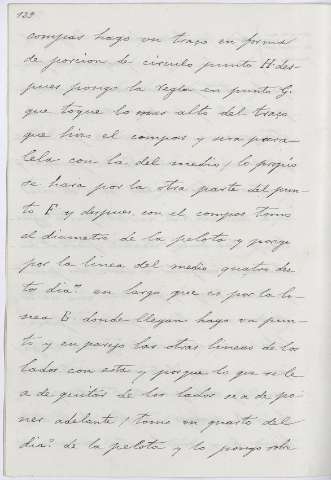 139
compas hago un trazo en forma
de porcion de circulo punto H. des-
pues pongo la regla en punto G.
que toque lo mas alto del trazo
que hizo el compas y sera para-
lela con la del medio / lo propio
se hara por la otra parte del pun-
to F y despues con el compas tomo
el diametro de la pelota y pongo
por la linea del medio quatro des-
tos dia.ᵒˢ en largo que es por la li-
nea E. donde llegan hago un pun-
to y emparejo las otras lineas de los
lados con esta y porque lo que se le
a de quitar de los lados se a de po-
ner adelante / tomo un quarto del
dia.ᵒ de la pelota y lo pongo sobre